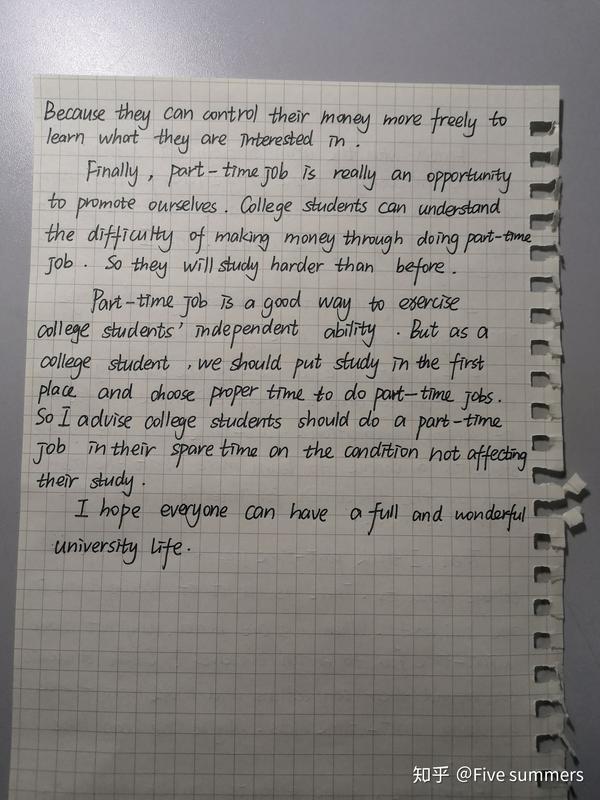 Because they can control their money more freely to
learn what they are interested in.
Finally, part-time job is really an opportunity
to promote ourselves. College students can understand
the difficulty of making money through doing part-time
job. So they will study harder than before.
Part-time job is a good way to exercise
college students' independent ability. But as a
college student, we should put study in the first
place and choose proper time to do part-time jobs.
So I advise college students should do a part-time
job in their spare time on the condition not affecting
their study.
I hope everyone can have a full and wonderful
university life.
知乎 @Five summers